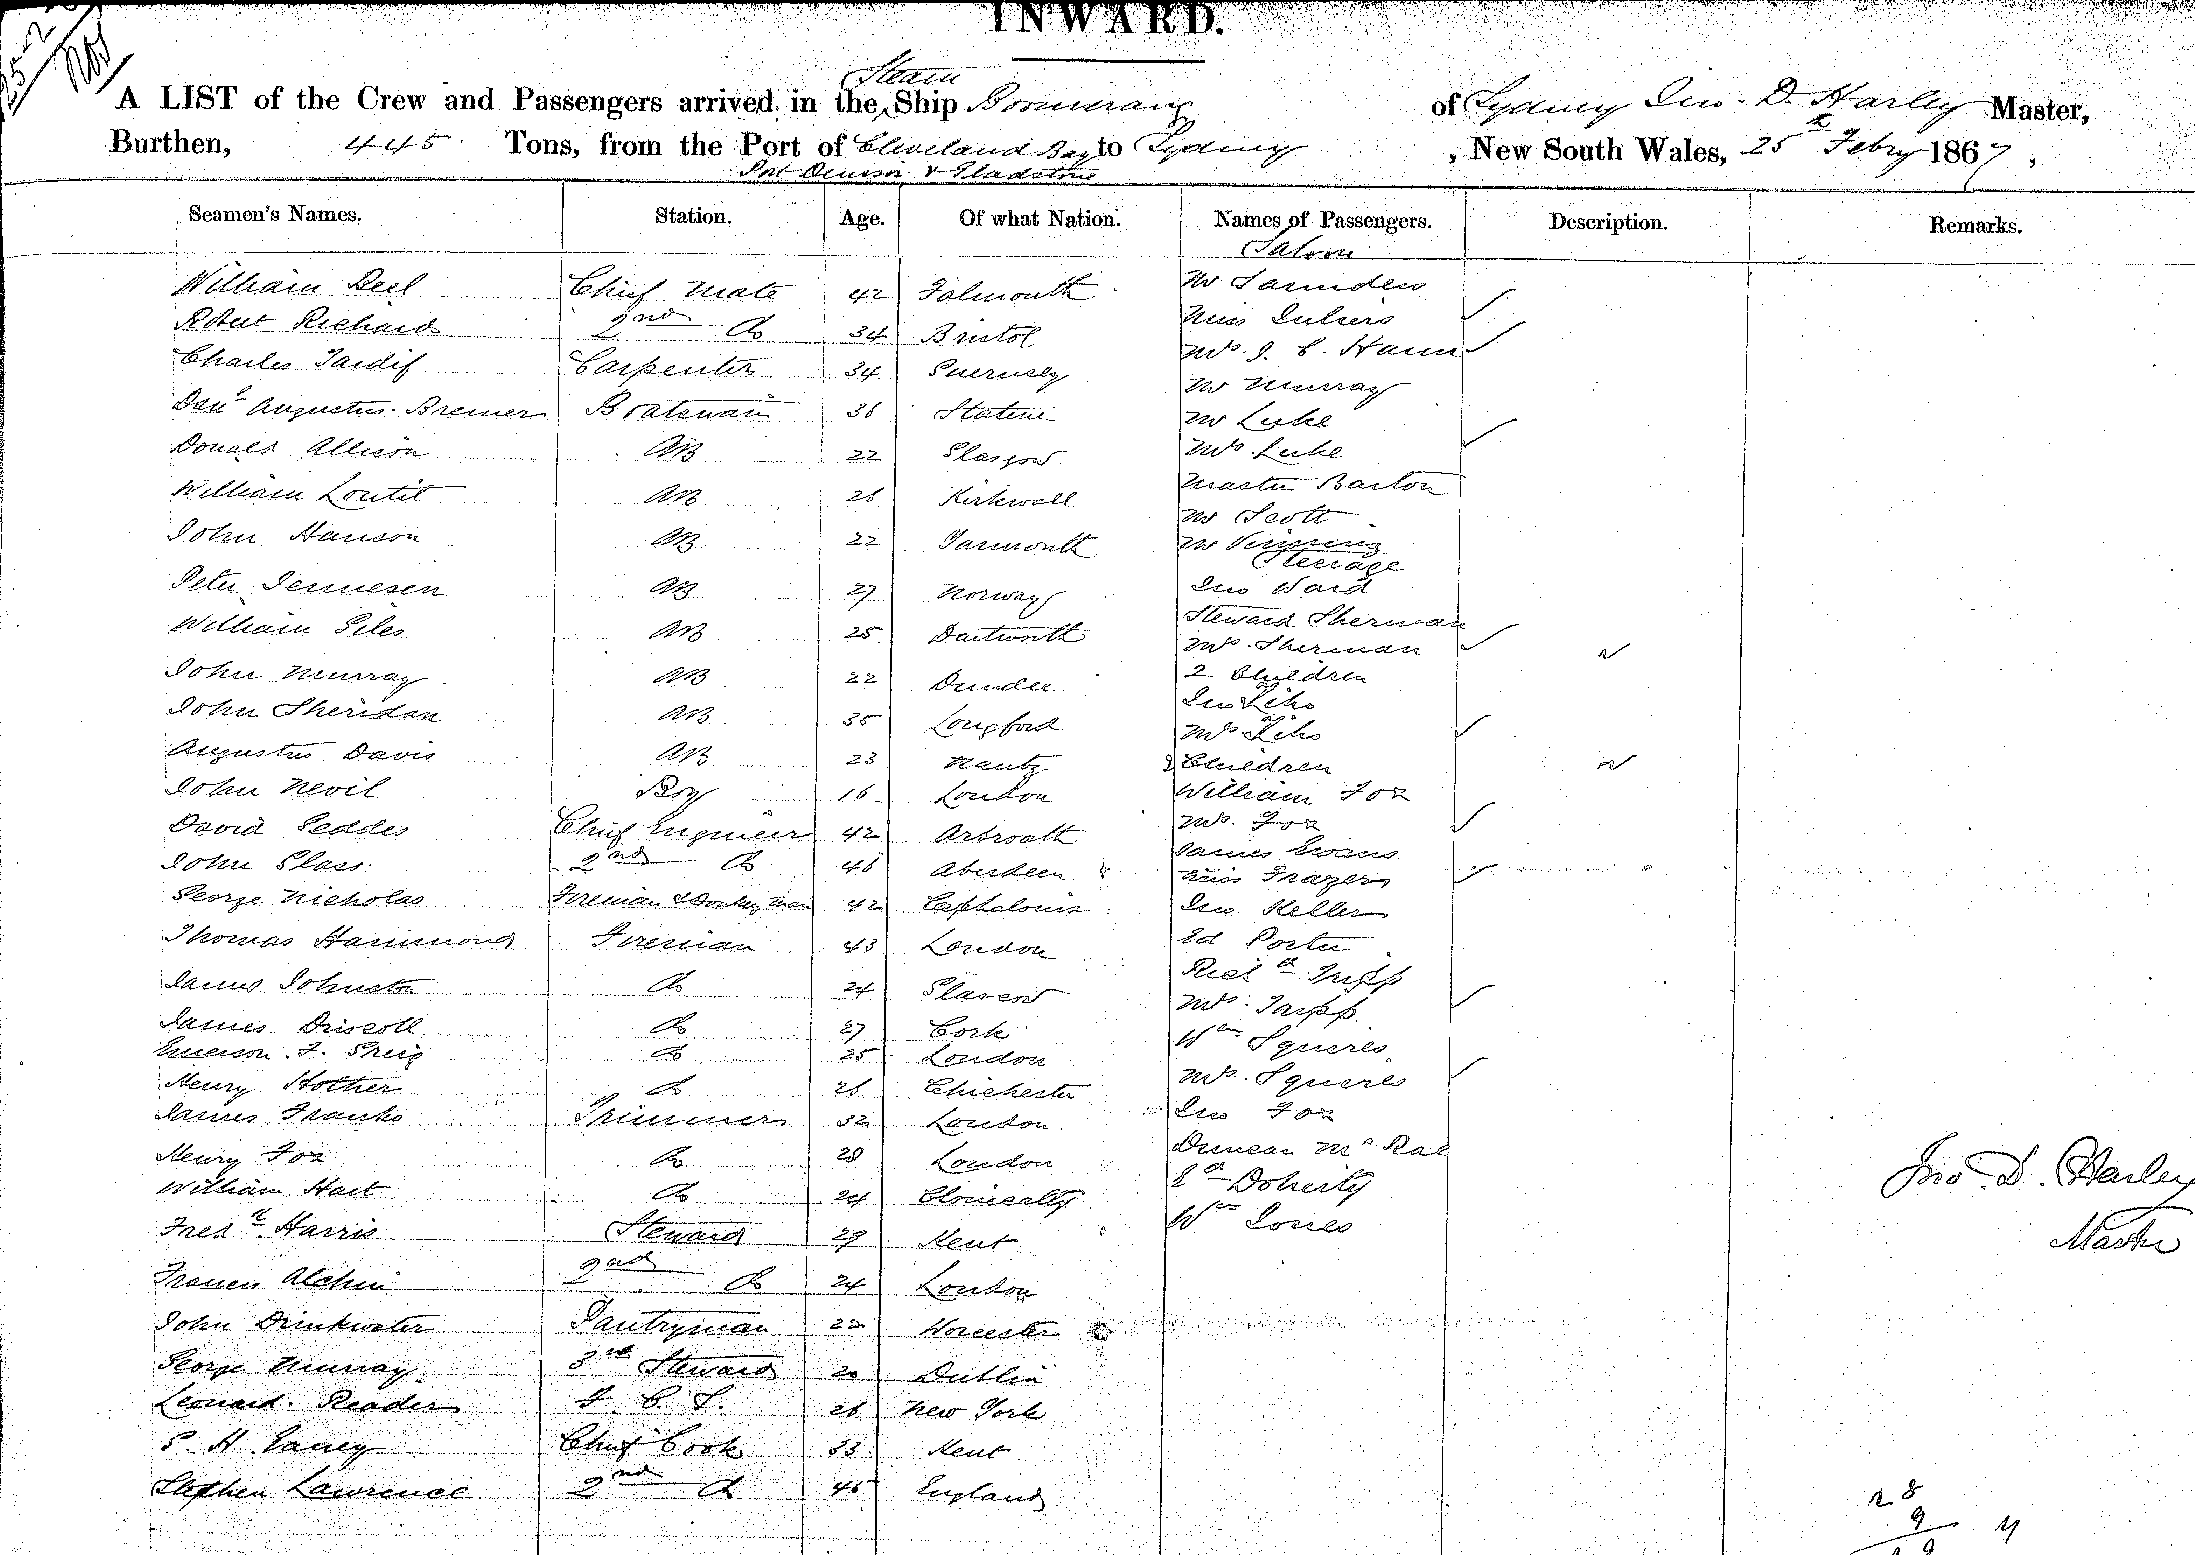 INWARD.
A LIST of the Crew and Passengers arrived in the Steam Ship Boomerang of Sydney Jno. D. Harley Master,
Burthen, 445 Tons, from the Port of Cleveland Bay to Sydney, New South Wales, 25th Febry 1867,
Port Denison & Gladstone
Seamen's Names. Station. Age. Of what Nation. Names of Passengers. Description. Remarks.
Saloon
William Chief Mate 42 Falmouth Mr
Robert Richards 2nd Do 34 Bristol Miss
Charles Tardif Carpenter 34 Guernsey Mrs J. C. Hann
Augustus Bremer Boatswain 36 Mr Murray
Mr Luke
Donald Allison AB 22 Glasgow Mrs Luke
William Loutit AB 26 Kirkwall Master Barton
Mr Scott
John Hanson AB 22 Yarmouth Mr
Steerage
Peter Jennesen AB 27 Norway Jno Ward
William Giles AB 25 Dartmouth Steward Sherman
Mrs Sherman
John Murray AB 22 Dundee 2 Children
John Sheridan AB 35 Longford Jno
Mrs
Augustus Davis AB 23 Nantz 2 Children
John Nevil Boy 16 London William Fox
David Geddes Chief Engineer 42 Arbroath Mrs. Fox
John Glass 2nd Do 46 Aberdeen James Evans
Miss Frazer
George Nicholas Fireman & Donkey man 42 Cephalonia Jno Keller
Thomas Hammond Fireman 43 London Ed Porter
James Johnston Do 24 Glasgow Richd Tripp
Mrs. Tripp
James Driscoll Do 27 Cork Wm Squires
Emerson. F. Do 25 London
Henry Hother Do 26 Chichester Mrs. Squires
James Franks Trimmer 32 London Jno Fox
Henry Fox Do 28 London Duncan McRae
William Hart Do 24 Doherty
Fredk Harris Steward 29 Kent Wm Jones
Francis Alchin 2nd Do 24 London
John Drinkwater Pantryman 22 Worcester
George Murray 3rd Steward 20 Dublin
Leonard Reader F. C. S. 26 New York
Chief Cook 33 Kent
Stephen Lawrence 2nd Do 46 England
Jno D. Harley
Master
28
9